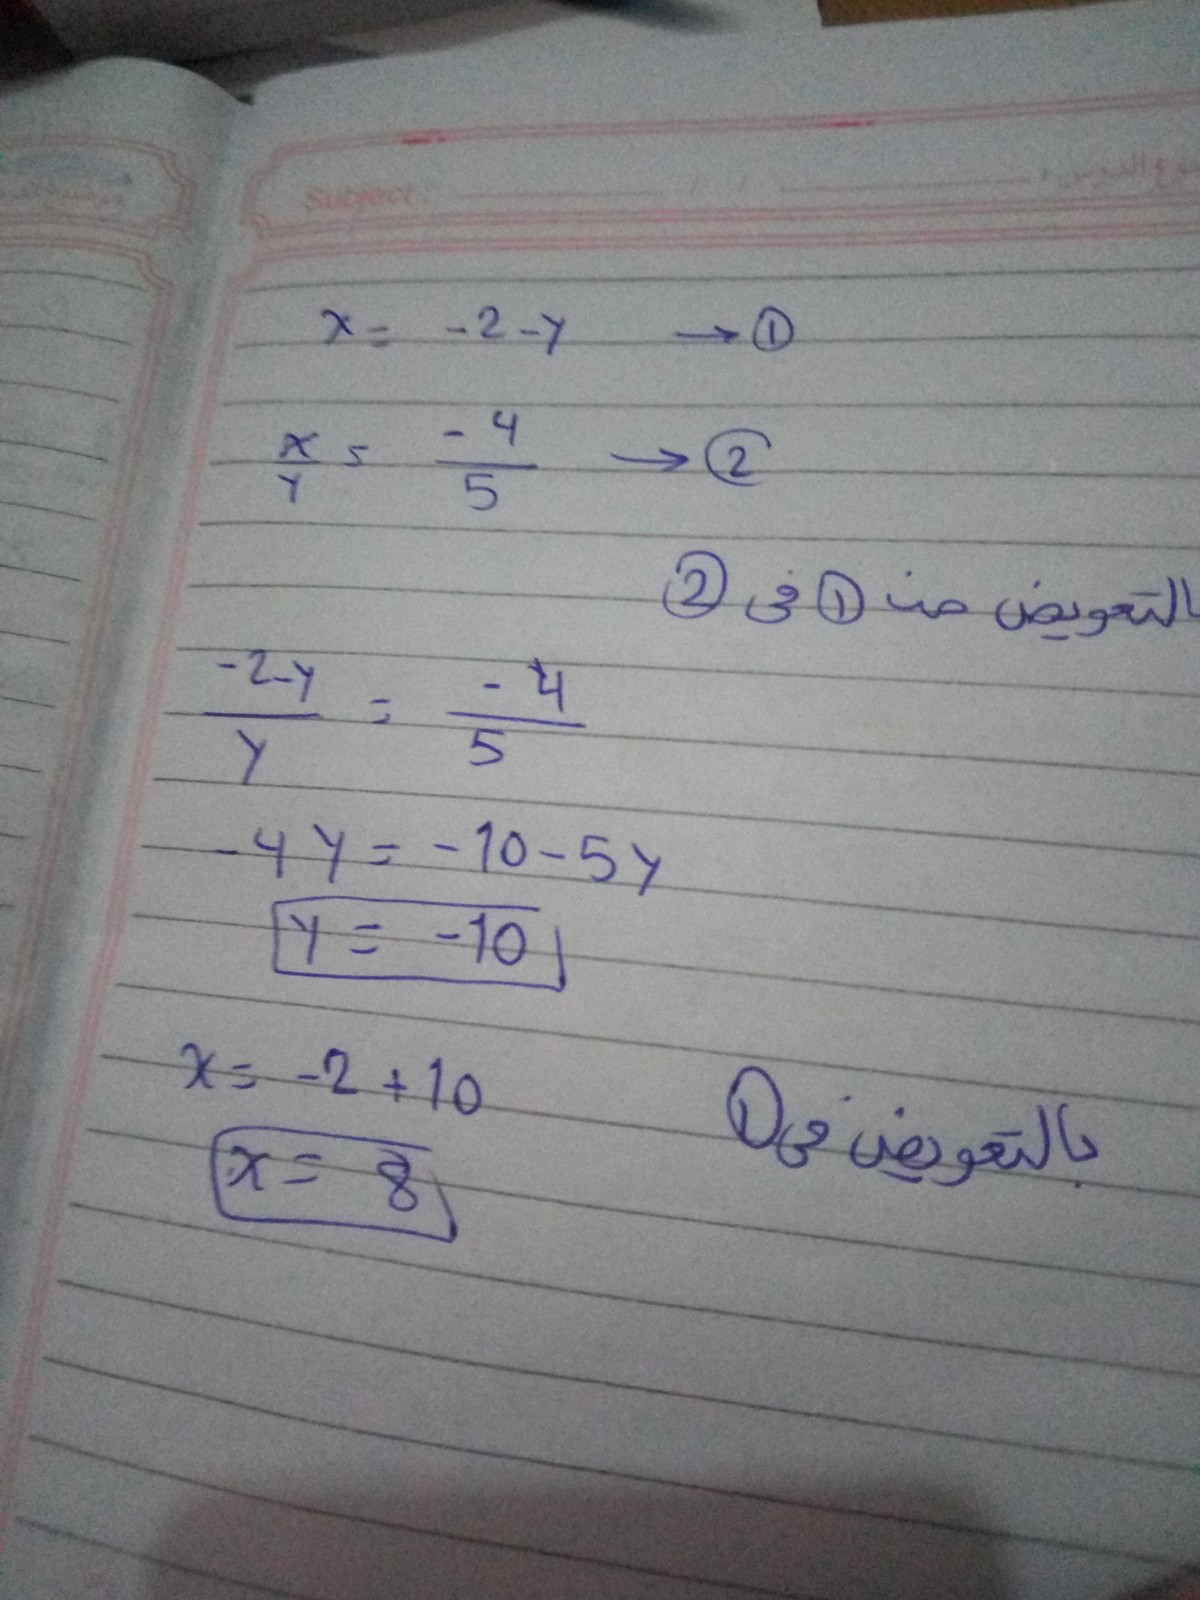 Subject:
x = -2 - y → ①
x/y = -4/5 → ②
بالتعويض من ① فى ②
-2-y/y = -4/5
-4y = -10 - 5y
y = -10
x = -2 + 10
بالتعويض فى ①
x = 8